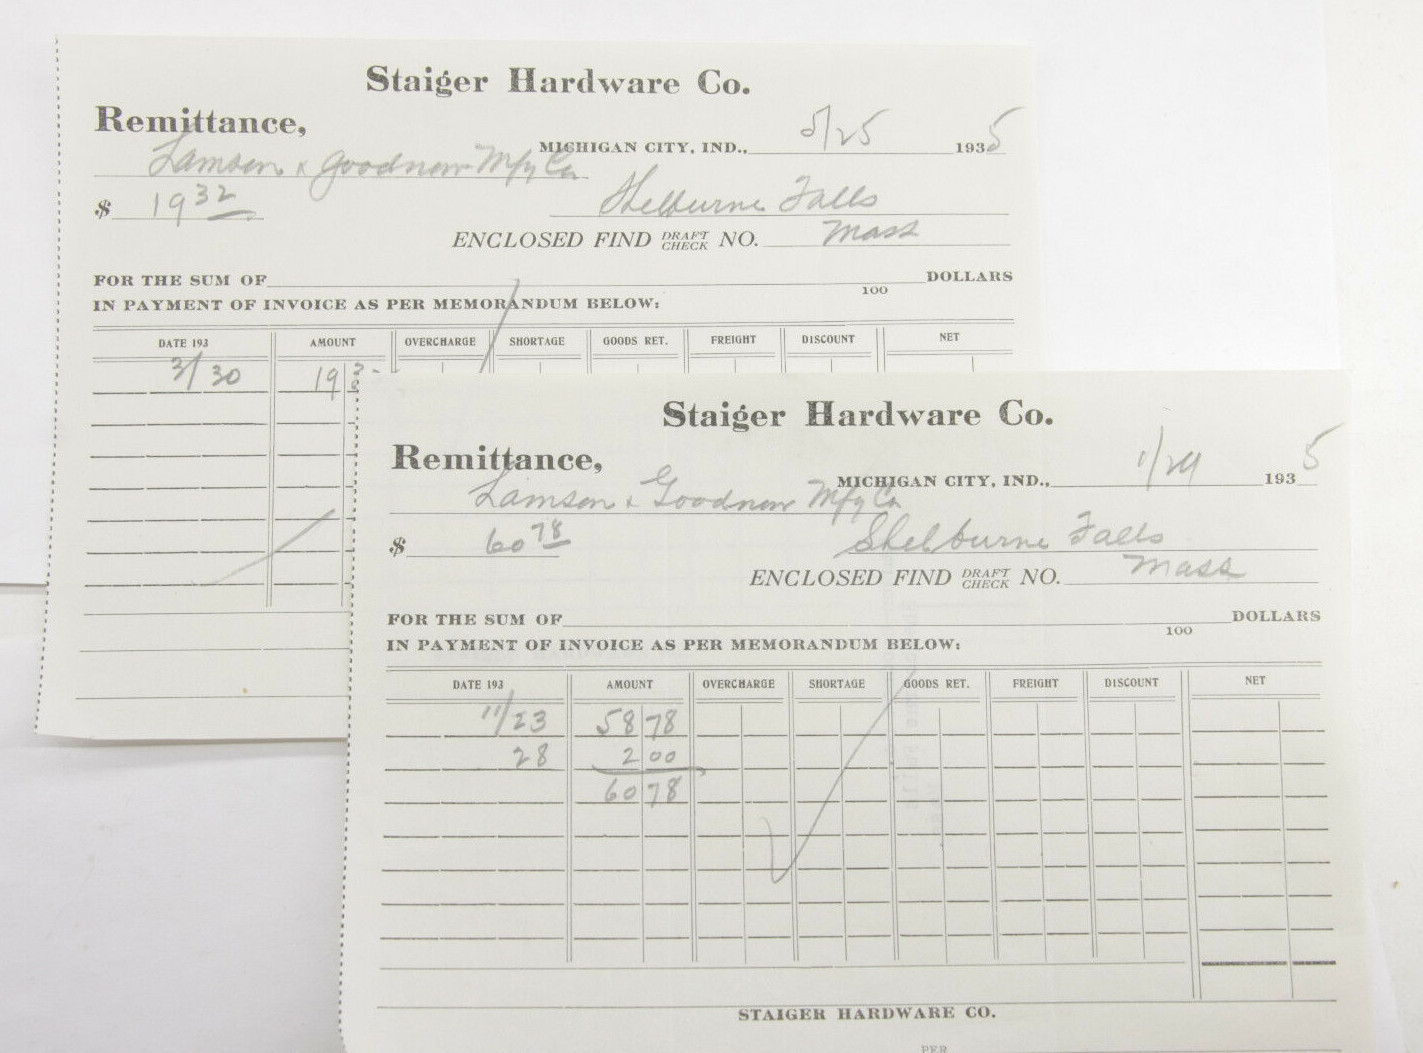 Staiger Hardware Co.
Remittance,
MICHIGAN CITY, IND., 5/25 1935
Lamson & Goodnow Mfg Co
$ 19 32
Shelburne Falls
ENCLOSED FIND DRAFT CHECK NO. Mass
FOR THE SUM OF 100 DOLLARS
IN PAYMENT OF INVOICE AS PER MEMORANDUM BELOW:
DATE 193 AMOUNT OVERCHARGE SHORTAGE GOODS RET. FREIGHT DISCOUNT NET
3/30 19
Staiger Hardware Co.
Remittance,
MICHIGAN CITY, IND., 1/24 1935
Lamson & Goodnow Mfg Co
$ 60 78
Shelburne Falls
ENCLOSED FIND DRAFT CHECK NO. Mass
FOR THE SUM OF 100 DOLLARS
IN PAYMENT OF INVOICE AS PER MEMORANDUM BELOW:
DATE 193 AMOUNT OVERCHARGE SHORTAGE GOODS RET. FREIGHT DISCOUNT NET
11/23 58 78
28 2 00
60 78
STAIGER HARDWARE CO.
PER